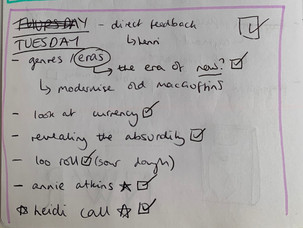 THURSDAY - direct feedback
TUESDAY ↳ henri
- genres / eras
↳ the era of now?
↳ modernise old macguffins
- look at currency
- revealing the absurdity
- loo roll (sour dough)
- annie atkins
heidi call